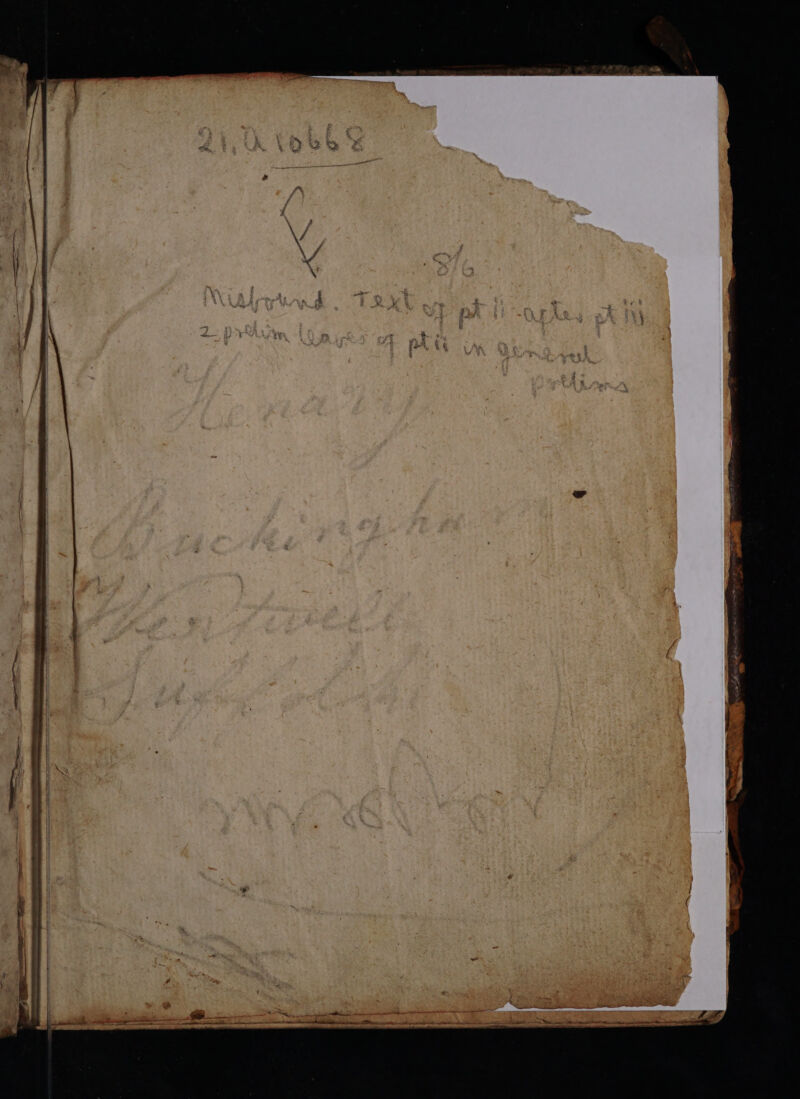 21. a 10668
E
8/6
Misbound. Text of pt ii after pt iii
2 prelim leaves of pt ii in general
prelims
Henary
Buckingham
Suffolk